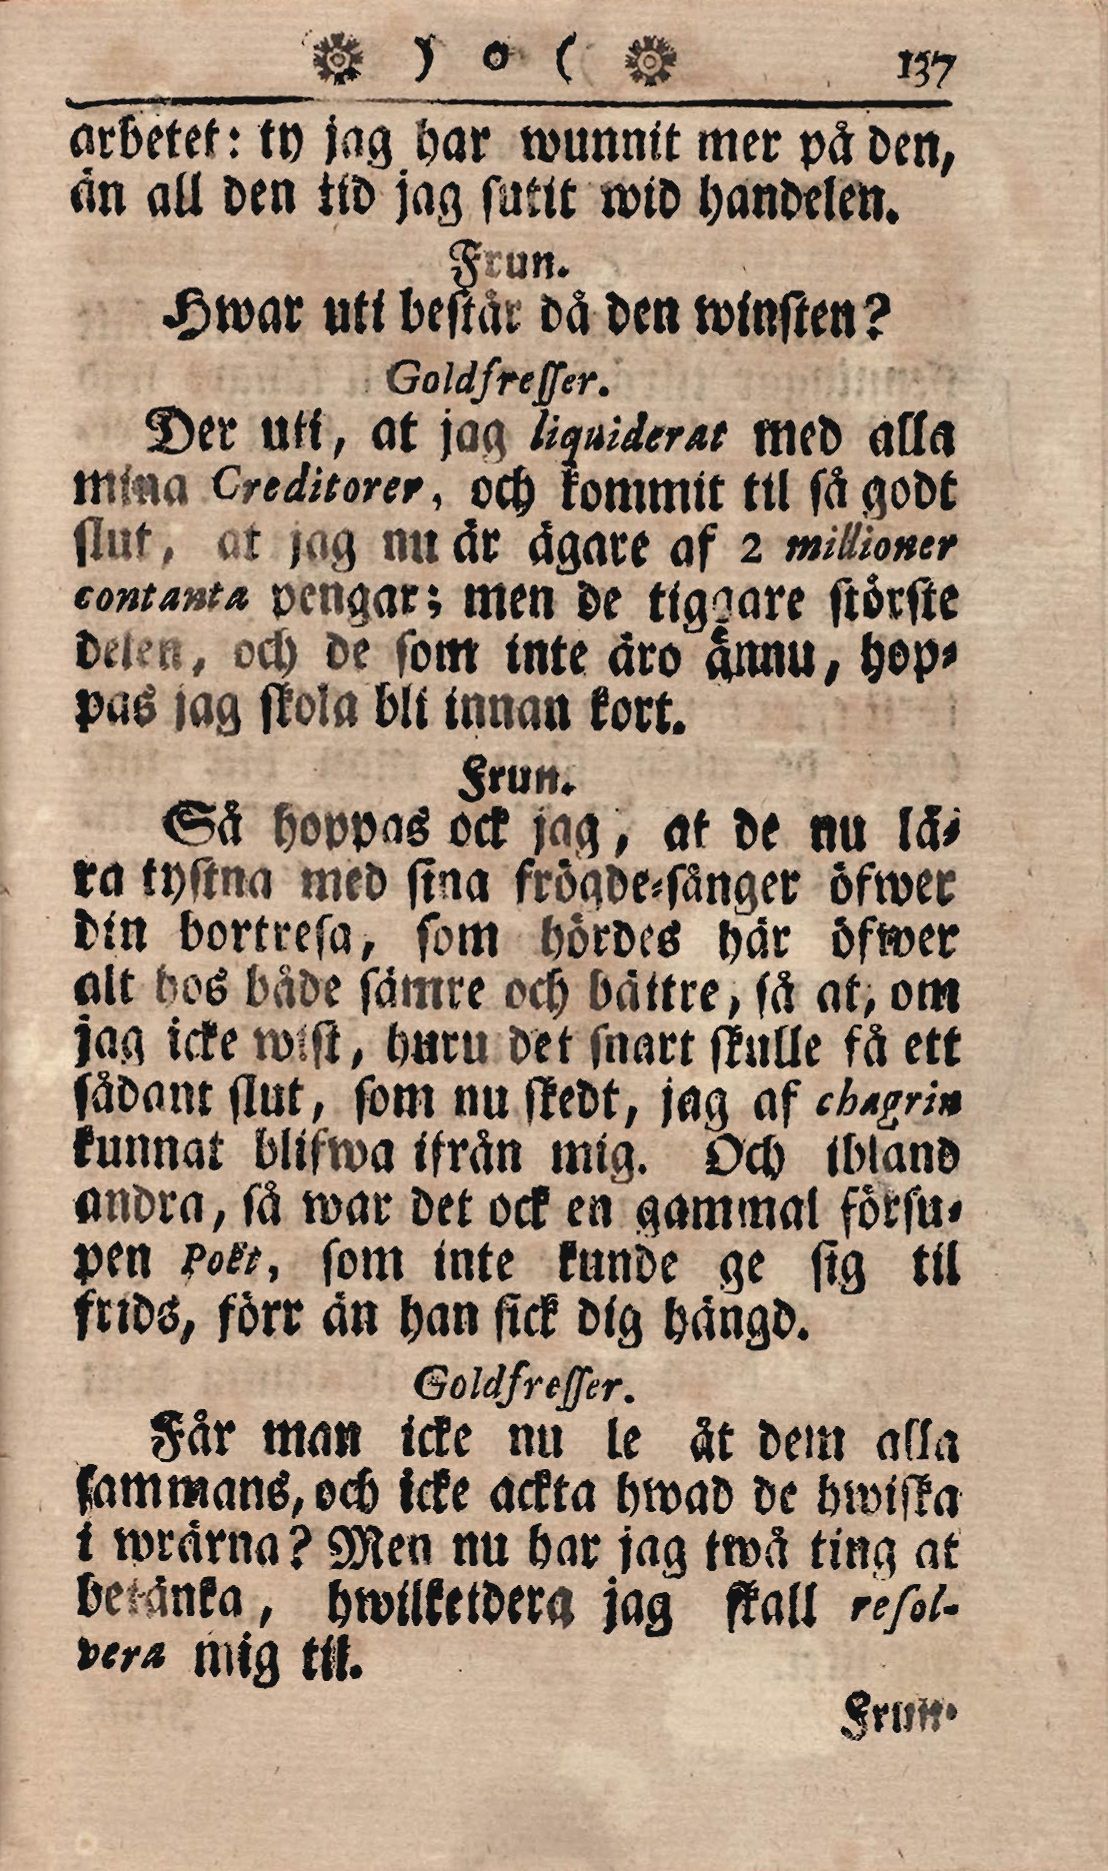 ) o ( 157
arbetet: ty jag har wunnit mer på den,
än all den tid jag sutit wid handelen.
Frun.
Hwar uti består då den winsten?
Goldfresser.
Der uti, at jag liquiderat med alla
mina Creditorer, och kommit til så godt
slut, at jag nu är ägare af 2 millioner
contanta pengar; men de tiggare större
delen, och de som inte äro ännu, hop-
pas jag skola bli innan kort.
Frun.
Så hoppas ock jag, at de nu lä-
ra tystna med sina frögde-sånger öfwer
din bortresa, som hördes här öfwer
alt hos både sämre och bättre, så at, om
jag icke wist, huru det snart skulle få ett
sådant slut, som nu skedt, jag af chagrin
kunnat blifwa ifrån mig. Och ibland
andra, så war det ock en gammal försu-
pen Poët, som inte kunde ge sig til
frids, förr än han fick dig hängd.
Goldfresser.
Får man icke nu le åt dem alla
sammans, och icke ackta hwad de hwiska
i wrärna? Men nu har jag twå ting at
betänka, hwilketdera jag skall resol-
vera mig til.
Frun.